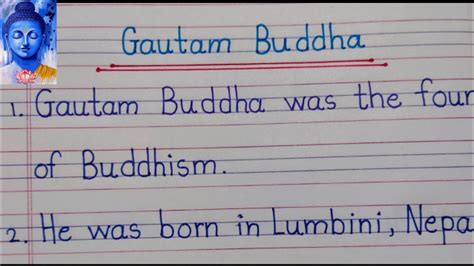 Gautam Buddha
1. Gautam Buddha was the foun
of Buddhism.
2. He was born in Lumbini, Nepa